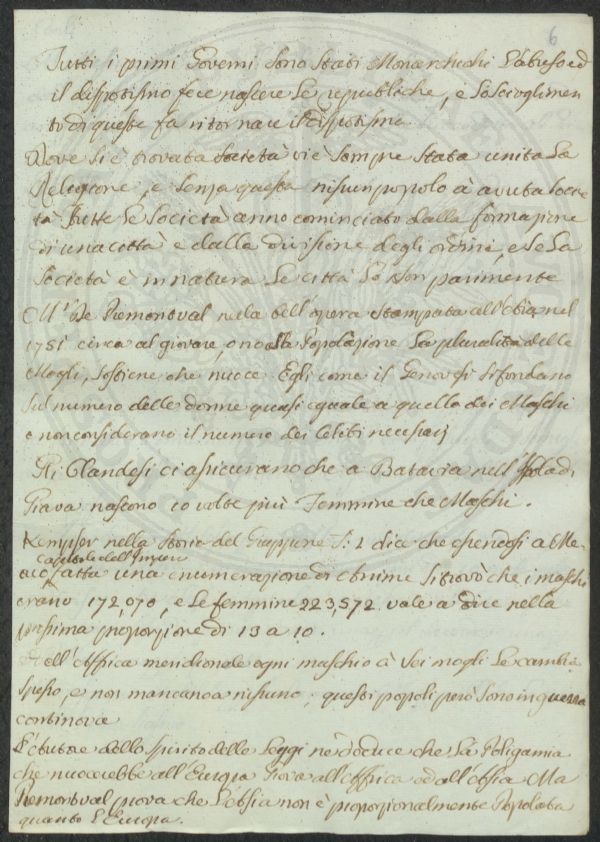 6
Tutti i primi Governi sono stati Monarchichi l'abuso ed
il dispotismo fece nascere le republiche, e lo scioglimen
to di queste fa ritornare il dispotismo
Dove si è trovata società vi è sempre stata unita la
Religione, e senza questa nisun popolo à avuta socie
tà Tutte le Società anno cominciato dalla formazione
di una città e dalla divisione degli ordini, e se la
Società è in natura le città lo son parimente
M.r De Premontval nella dell'opera stampata all'Aia nel
1751 circa al giovare, o no alla Popolazione la pluralità delle
Mogli, sostiene che nuoce. Egli come il Genovesi si fondano
sul numero delle donne quasi eguale a quello dei Maschi
e non considerano il numero dei celibi necessarj
Gli Olandesi ci assicurano che a Batavia nell'Isola di
Giava nascono 10 volte più Femmine che Maschi.
Kempfer nella Storia del Giappone T: 1 dice che essendosi a Me-
capitale dell'Impero
aco fatta una enumerazione di anime si trovò che i maschi
erano 172,070, e le femmine 223,572 vale a dire nella
prossima proporzione di 13 a 10.
Nell'Affrica meridionale ogni maschio à sei mogli le cambia
spesso, e non mancano a nisuno; questi popoli però sono in guerra
continova
L'Autore dello spirito delle Leggi ne deduce che la Poligamia
che nuocerebbe all'Europa giova all'Affrica ed all'Assia Ma
Premontval prova che l'Assia non è proporzionalmente Popolata
quanto l'Europa.